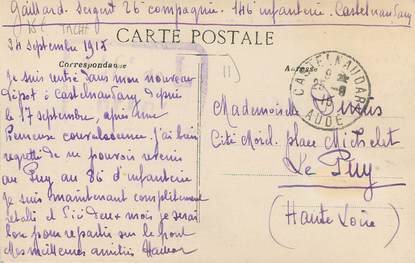 Gaillard. Sergent 26 compagnie. 146 infanterie. Castelnaudary
CARTE POSTALE
24 septembre 1915
Correspondance
Adresse
Je suis rentré dans mon nouveau
dépôt à Castelnaudary depuis
le 17 septembre, après une
convalescence. J'ai bien
regretté de ne pouvoir revenir
au Puy au 86 d'infanterie
Je suis maintenant complètement
rétabli et d'ici deux mois je serai
bon pour repartir sur le front
Mes meilleures amitiés
Mademoiselle
Cité Morel. place Michelet
Le Puy
(Haute Loire)
CASTELNAUDARY
AUDE